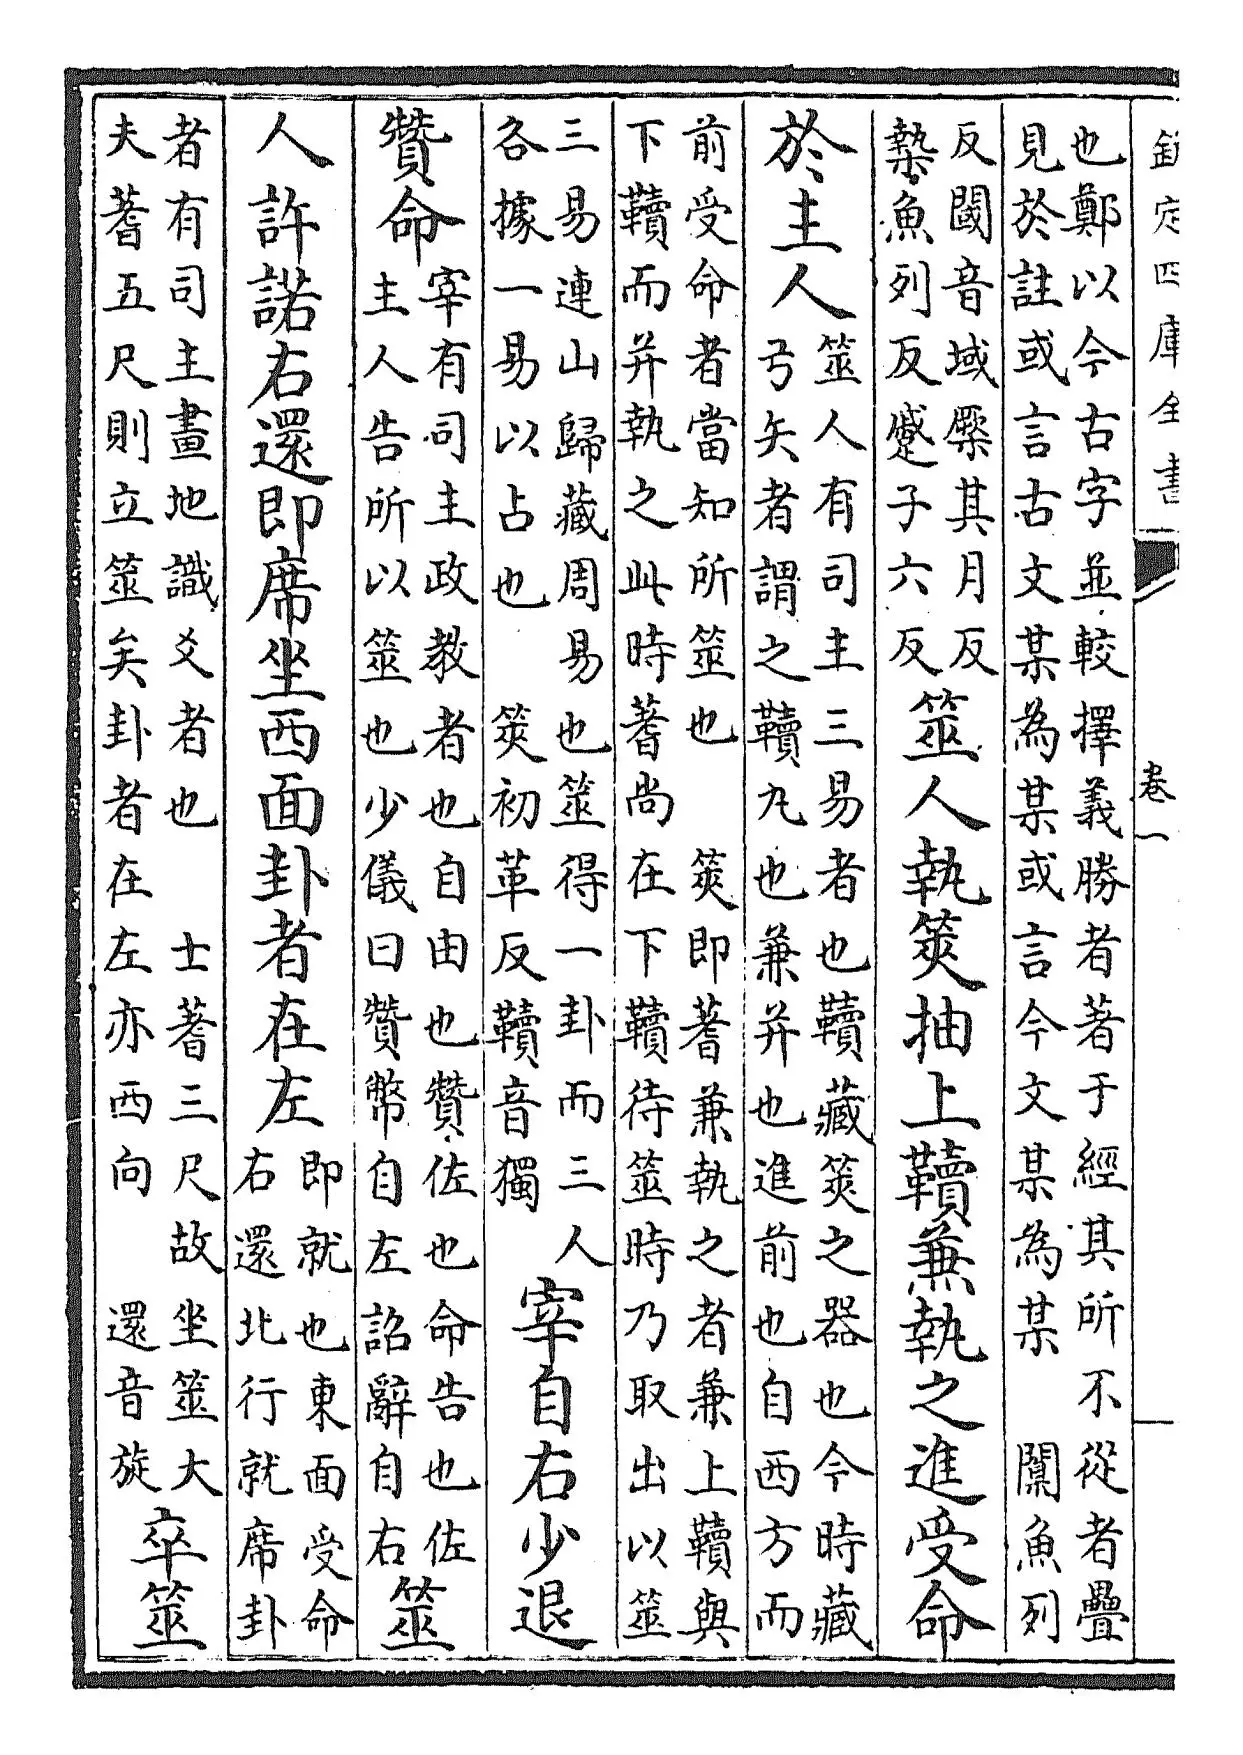 欽定四庫全書
卷一
也鄭以今古字並較擇義勝者著于經其所不從者疊
見於註或言古文某為某或言今文某為某 闑魚列
反閾音域㮨其月反
槷魚列反蹙子六反
筮人執筴抽上韇兼執之進受命
於主人
筮人有司主三易者也韇藏筴之器也今時藏
弓矢者謂之韇丸也兼并也進前也自西方而
前受命者當知所筮也 筴即蓍兼執之者兼上韇與
下韇而并執之此時蓍尚在下韇待筮時乃取出以筮
三易連山歸藏周易也筮得一卦而三人
各據一易以占也 筴初革反韇音獨
宰自右少退
贊命
宰有司主政教者也自由也贊佐也命告也佐
主人告所以筮也少儀曰贊幣自左詔辭自右
筮
人許諾右還即席坐西面卦者在左
即就也東面受命
右還北行就席卦
者有司主畫地識爻者也 士蓍三尺故坐筮大
夫蓍五尺則立筮矣卦者在左亦西向 還音旋
卒筮